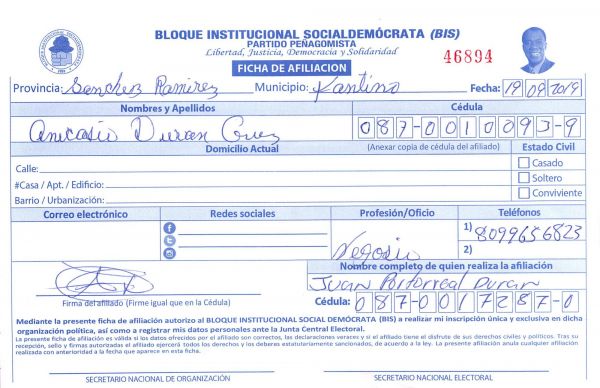 BLOQUE INSTITUCIONAL SOCIALDEMÓCRATA (BIS)
PARTIDO PEÑAGOMISTA
Libertad, Justicia, Democracia y Solidaridad
46894
FICHA DE AFILIACION
Provincia: Sanchez Ramirez Municipio: Fantino Fecha: 19 09 2019
Nombres y Apellidos Cédula
Anicasio Duran Cruz 087-0010093-9
Domicilio Actual (Anexar copia de cédula del afiliado) Estado Civil
Calle: Casado
#Casa / Apt. / Edificio: Soltero
Barrio / Urbanización: Conviviente
Correo electrónico Redes sociales Profesión/Oficio Teléfonos
1) 8099656823
Negocio 2)
Nombre completo de quien realiza la afiliación
Juan Portorreal Duran
Firma del afiliado (Firme igual que en la Cédula) Cédula: 087-0017287-0
Mediante la presente ficha de afiliación autorizo al BLOQUE INSTITUCIONAL SOCIAL DEMÓCRATA (BIS) a realizar mi inscripción única y exclusiva en dicha
organización política, así como a registrar mis datos personales ante la Junta Central Electoral.
La presente ficha de afiliación es válida si los datos ofrecidos por el afiliado son correctos, las declaraciones veraces y si el afiliado tiene el disfrute de sus derechos civiles y políticos. Tras su
recepción, sello y firmas autorizadas el afiliado ejercerá todos los derechos y los deberes estatutariamente sancionados, de acuerdo a la ley. La presente afiliación anula cualquier afiliación
realizada con anterioridad a la fecha que aparece en esta ficha.
SECRETARIO NACIONAL DE ORGANIZACIÓN SECRETARIO NACIONAL ELECTORAL